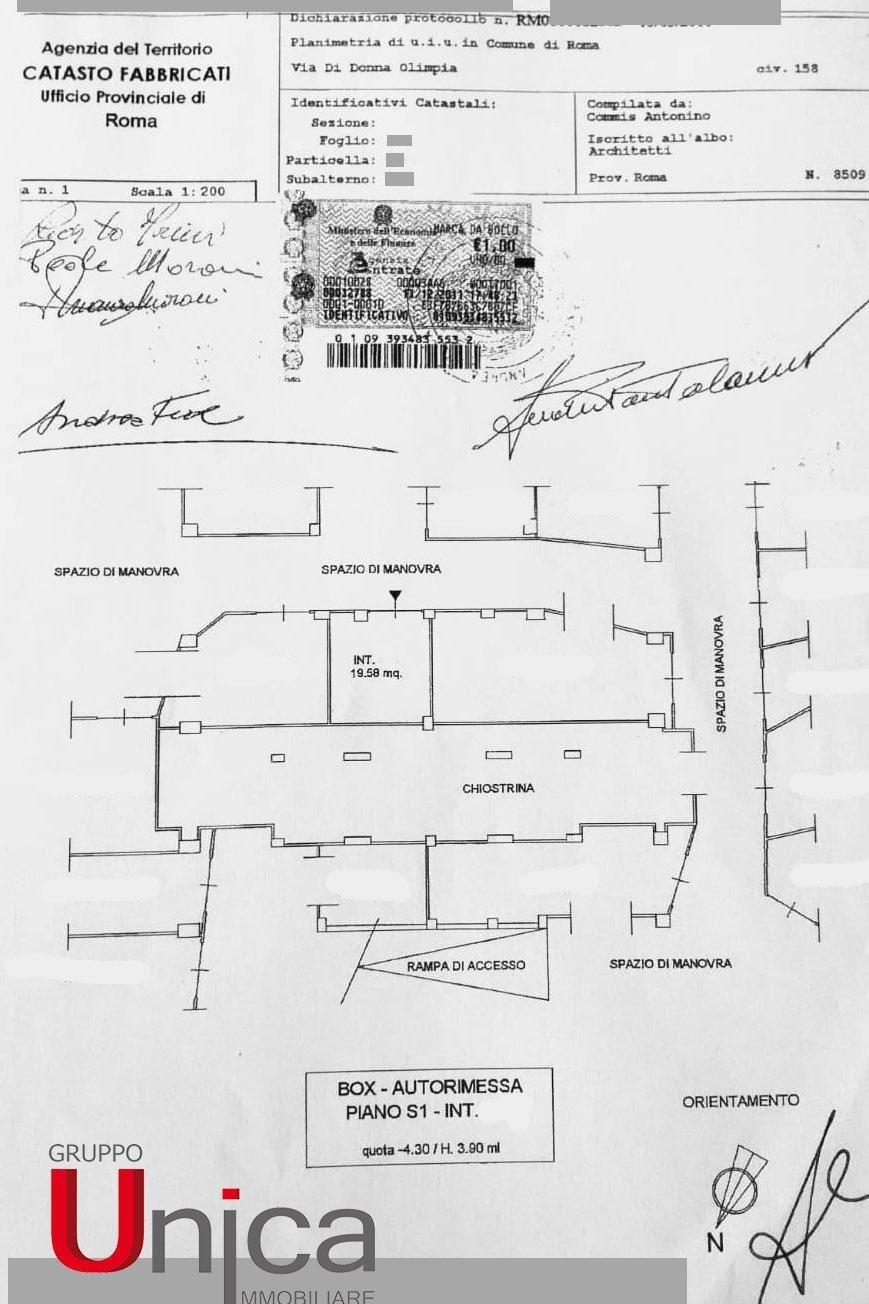 Dichiarazione protocollo n. RM0
Agenzia del Territorio
CATASTO FABBRICATI
Ufficio Provinciale di
Roma
Planimetria di u.i.u. in Comune di Roma
Via Di Donna Olimpia
civ. 158
Identificativi Catastali:
Sezione:
Foglio:
Particella:
Subalterno:
Compilata da:
Commis Antonino
Iscritto all'albo:
Architetti
Prov. Roma
N. 8509
a n. 1
Scala 1:200
Ministero dell'Economia
e delle Finanze
MARCA DA BOLLO
€1,00
Agenzia
Entrate
IDENTIFICATIVO
0 1 09 393483 553 2
SPAZIO DI MANOVRA
SPAZIO DI MANOVRA
SPAZIO DI MANOVRA
INT.
19.58 mq.
CHIOSTRINA
RAMPA DI ACCESSO
SPAZIO DI MANOVRA
BOX - AUTORIMESSA
PIANO S1 - INT.
quota -4.30 / H. 3.90 ml
ORIENTAMENTO
N
GRUPPO
Unica
IMMOBILIARE